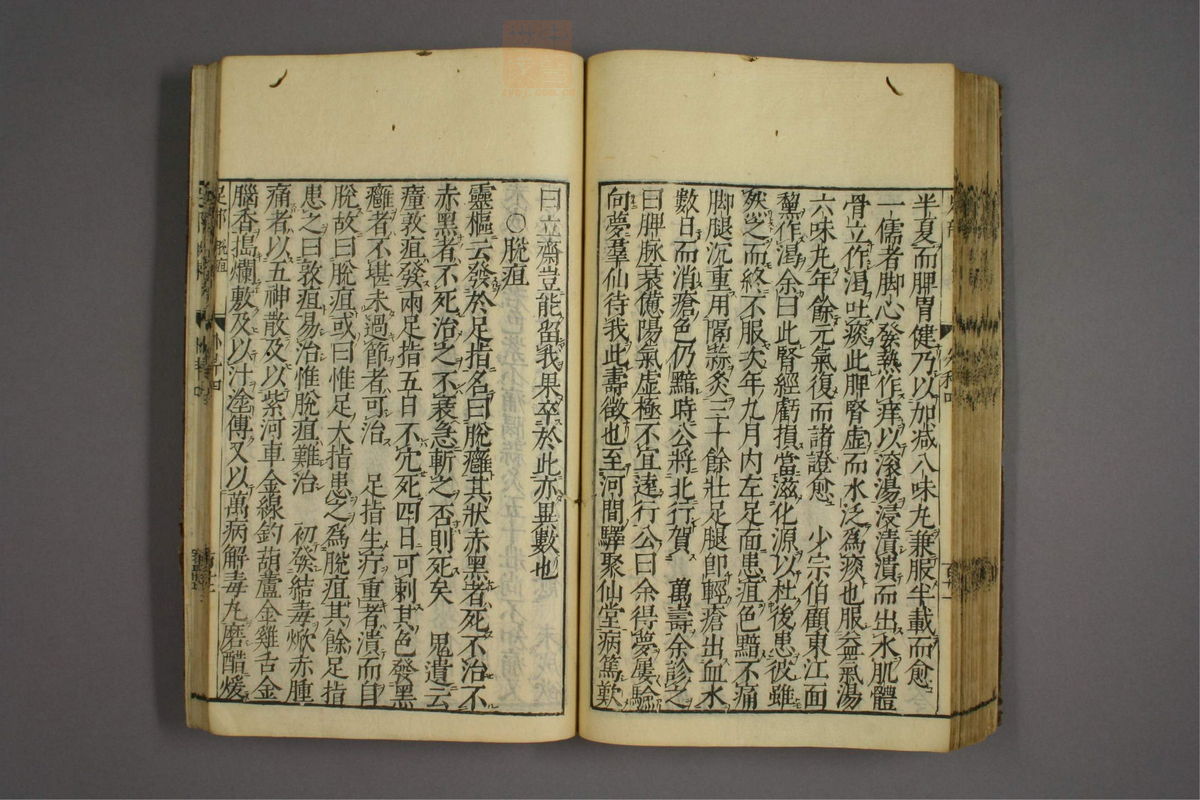 半夏而脾胃健乃以加减八味丸兼服半載而愈
一儒者脚心發熱作痒以滚湯浸漬潰而出水肌體
骨立作渴吐痰此脾腎虚而水泛為痰也服益氣湯
六味丸年餘元氣復而諸證愈　少宗伯顧東江面
黧作渴余曰此腎經虧損當滋化源以杜後患彼雖
然之而終不服次年九月内左足面患疽色黯不痛
脚腿沉重用隔蒜灸三十餘壯足腿即輕瘡出血水
數日而消瘡色仍黯時公將北行賀　萬壽余診之
曰脾脉衰憊陽氣虚極不宜遠行公曰余得夢屡驗
向夢羣仙待我此壽徵也至河間驛聚仙堂病篤歎
曰立齋豈能留我果卒於此亦異數也
○脫疽
靈樞云發於足指名曰脫癰其狀赤黑者死不治不
赤黑者不死治之不衰急斬之否則死矣　鬼遺云
㿈敦疽發兩足指五日不穴死四日可刺其色發黑
癰者不堪未過節者可治　足指生疔重者潰而自
脫故曰脫疽或曰惟足大指患之為脫疽其餘足指
患之曰敦疽易治惟脫疽難治　初發結毒焮赤腫
痛者以五神散及以紫河車金線釣葫蘆金雞舌金
腦香搗爛敷及以汁塗傅又以萬病解毒丸磨醋煖
足部　脫疽